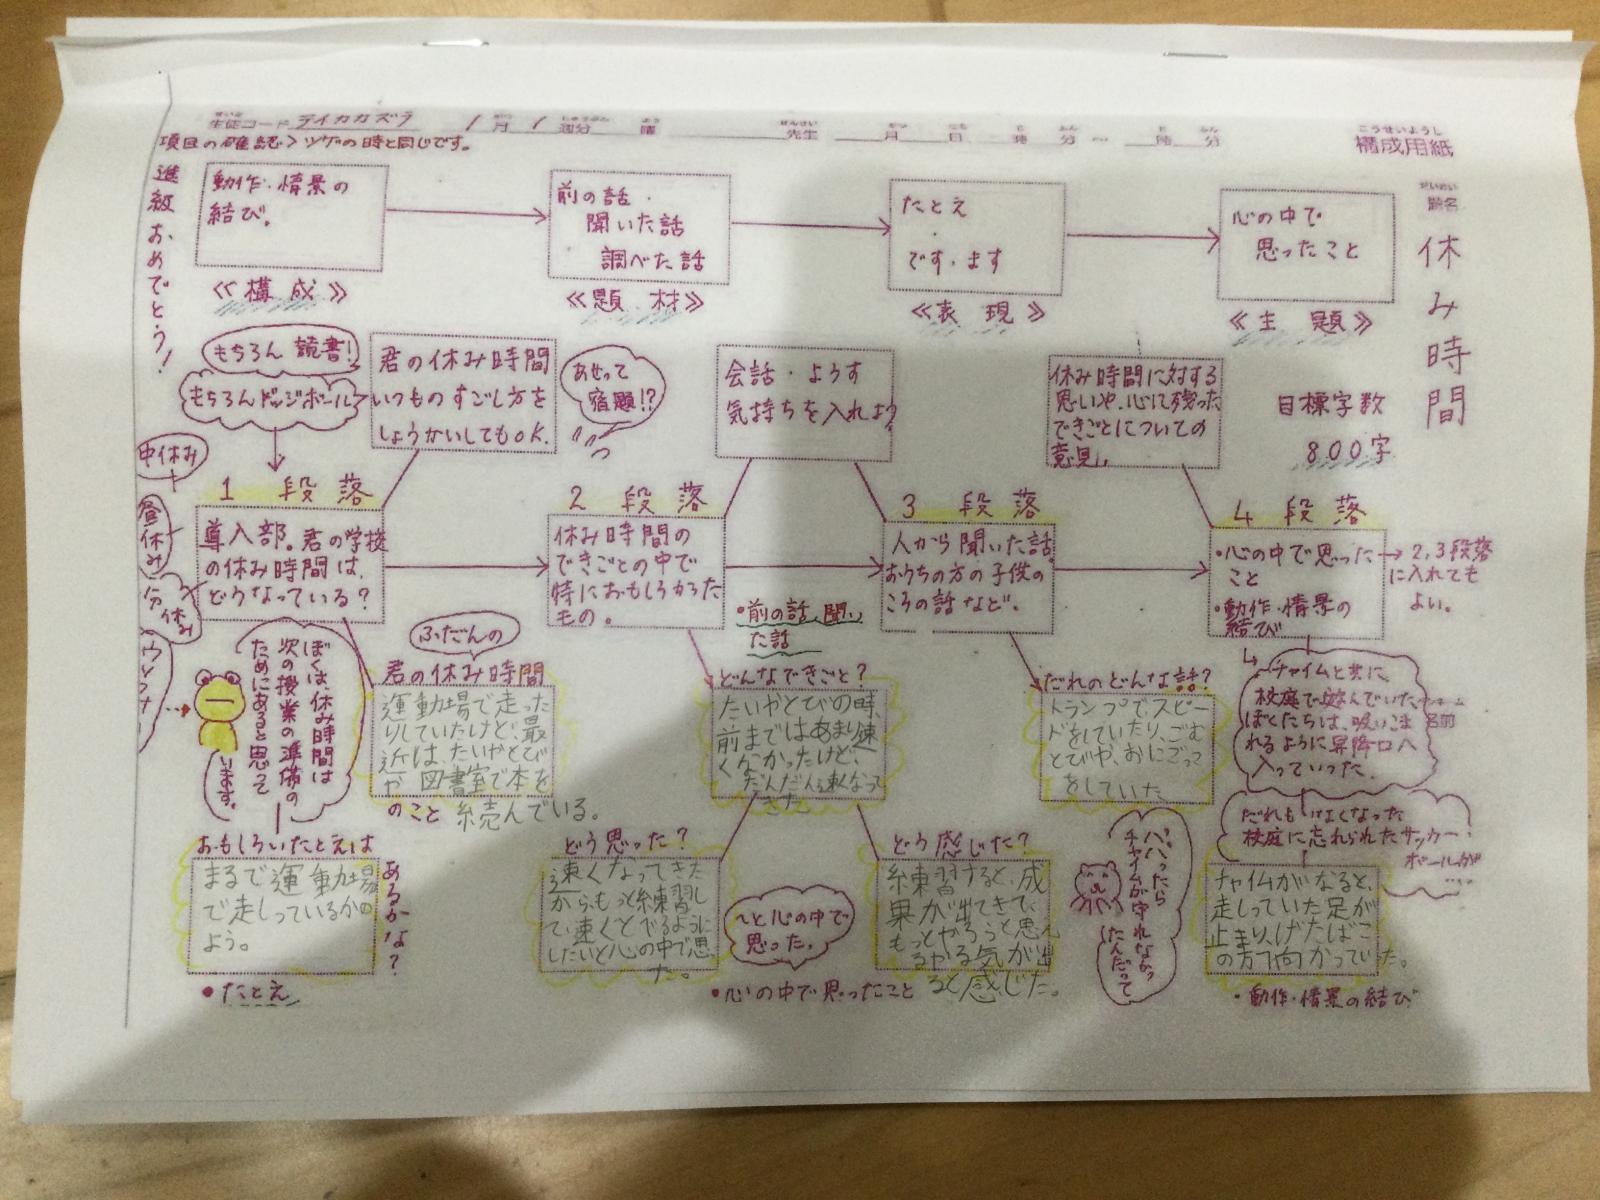 生徒コード ライカカズラ 1月1週分 曜 先生 月 日 時 分 ～ 時 分
構成用紙
項目の確認>ツゲの時と同じです。
進級おめでとう!
題名
休み時間
目標字数
800字
動作・情景の
結び。
≪構成≫
前の話・
聞いた話
調べた話
≪題材≫
たとえ
・
です・ます
≪表現≫
心の中で
思ったこと
≪主題≫
もちろん読書!
もちろんドッジボール
君の休み時間
いつものすごし方を
しょうかいしてもOK.
あせって
宿題!?
会話・ようす
気持ちを入れよう
休み時間に対する
思いや、心に残った
できごとについての
意見。
中休み
昼休み
分休み
1 段落
導入部。君の学校
の休み時間は、
どうなっている?
2 段落
休み時間の
できごとの中で
特におもしろかった
もの。
3 段落
人から聞いた話。
おうちの方の子供の
ころの話など。
4 段落
・心の中で思った
こと
・動作・情景の
結び
→2,3段落
に入れても
よい。
・前の話、聞い
た話
ぼくは、休み時間は
次の授業の準備の
ためにあると思って
います。
ふだんの
君の休み時間
運動場で走った
りしていたけど、最
近は、たいやとび
や 図書室で本を
のこと 読んでいる。
どんなできごと?
たいやとびの時、
前まではあまり速
くなかったけど、
だんだん速くなって
きた
だれのどんな話?
トランプでスピー
ドをしていたり、ごむ
とびや、おにごっこ
をしていた
チャイムと共に
校庭で遊んでいた
ぼくたちは、吸いこま
れるように昇降口へ
入っていった。
だれもいなくなった
校庭に忘れられたサッカー
ボールが
....
おもしろいたとえは
あるかな?
まるで運動場
で走しっているかの
よう。
・たとえ
どう思った?
速くなってきた
から、もっと練習し
て、速くとべるように
したいと心の中で思っ
た。
〜と心の中で
思った。
・心の中で思ったこと
どう感じた?
練習すると、成
果が出てきて、
もっとやろうと思え
るやる気が出
ると感じた。
パパだったら
チャイムが守れなかっ
たんだって
チャイムがなると、
走しっていた足が
止まり、げたばこ
の方へ向かっていた。
・動作・情景の結び